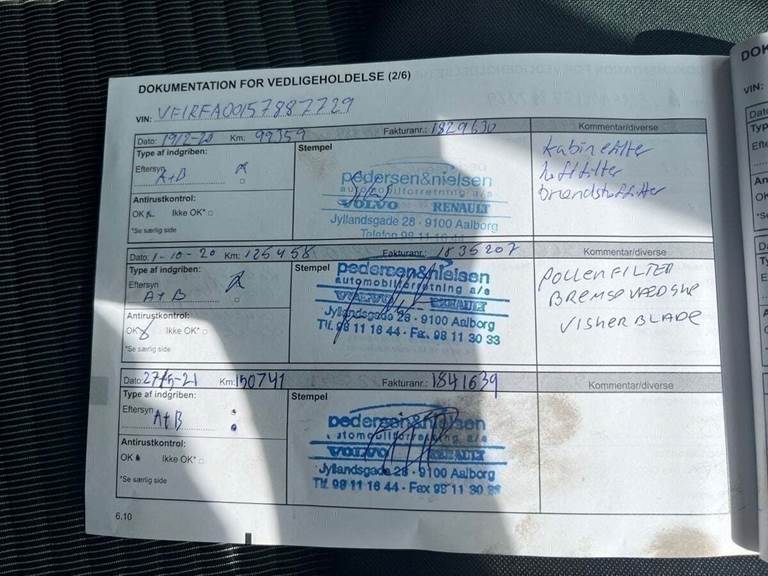 DOKUMENTATION FOR VEDLIGEHOLDELSE (2/6)
VIN: VF1RFA00157887729
Dato: 19/2-20 Km. 99359 Fakturanr.: 1829630 Kommentar/diverse
Type af indgriben:
Eftersyn A+B
Antirustkontrol:
OK Ikke OK*
*Se særlig side
Stempel
pedersen&nielsen
automobilforretning a/s
VOLVO RENAULT
Jyllandsgade 28 - 9100 Aalborg
Telefon 98 11 16 44
Kabinefilter
luftfilter
brændstoffilter
Dato: 1-10-20 Km: 125458 Fakturanr.: 1835207 Kommentar/diverse
Type af indgriben:
Eftersyn A+B
Antirustkontrol:
OK Ikke OK*
*Se særlig side
Stempel
pedersen&nielsen
automobilforretning a/s
VOLVO RENAULT
Jyllandsgade 28 - 9100 Aalborg
Tlf. 98 11 16 44 - Fax. 98 11 30 33
POLLENFILTER
BREMSEVÆDSKE
VISKERBLADE
Dato: 27/5-21 Km: 150741 Fakturanr.: 1841639 Kommentar/diverse
Type af indgriben:
Eftersyn A+B
Antirustkontrol:
OK Ikke OK*
*Se særlig side
Stempel
pedersen&nielsen
automobilforretning a/s
VOLVO RENAULT
Jyllandsgade 28 - 9100 Aalborg
Tlf. 98 11 16 44 - Fax 98 11 30
6.10
VIN: